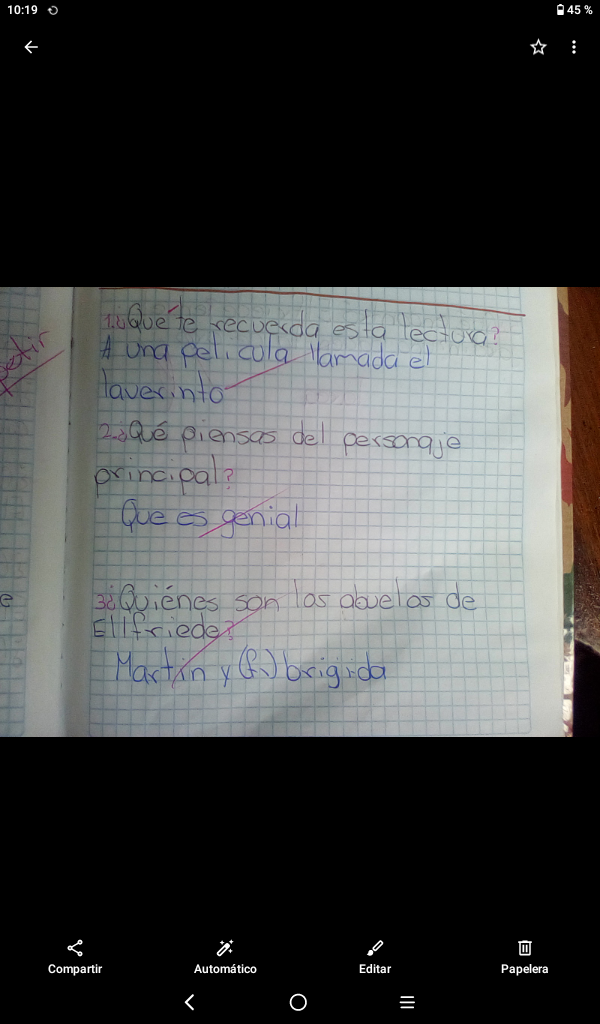 10:19
45 %
1.¿Qué te recuerda esta lectura?
A una pelicula llamada el
laverinto
2.¿Qué piensas del personaje
principal?
Que es genial
e
3¿Quiénes son los abuelos de
Ellfriede?
Martin y brigida
Compartir
Automático
Editar
Papelera